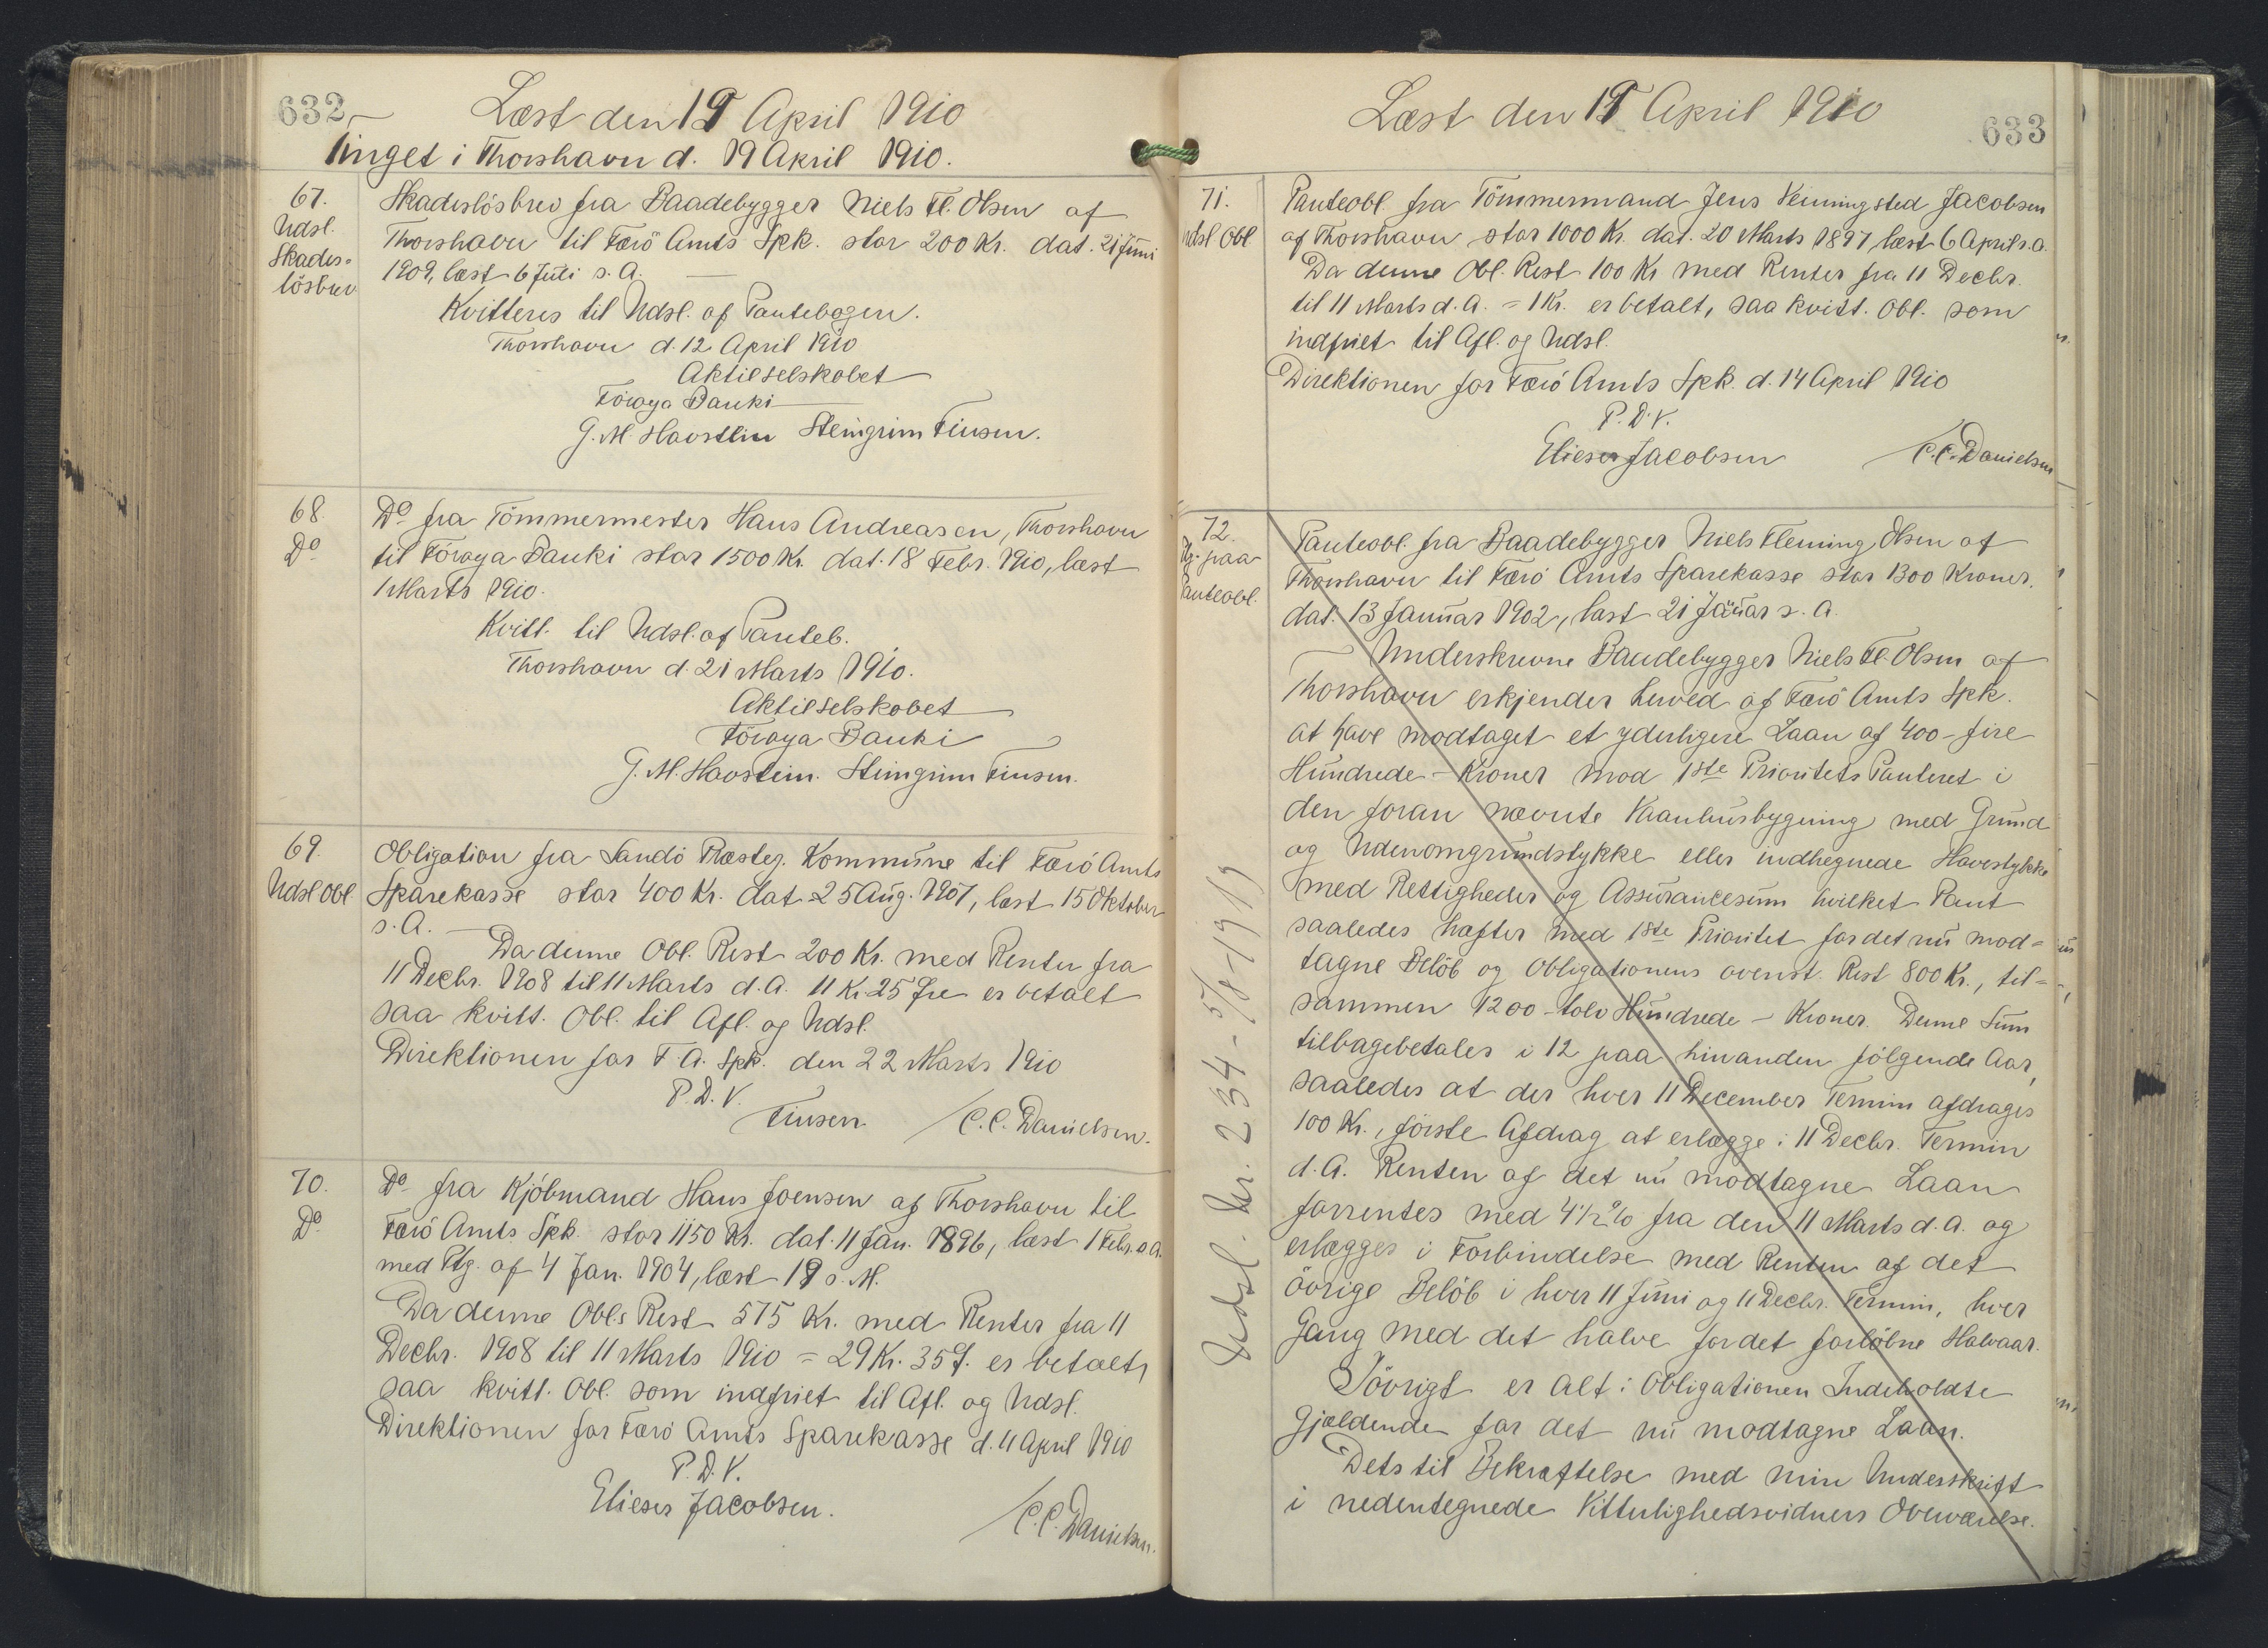 632
Læst den 19 April 1910
Tinget i Thorshavn d. 19 April 1910.
67.
Udsl.
Skades-
lösbrev
Skadeslösbrev fra Baadebygger Niels Fl. Olsen af
Thorshavn til Færö Amts Spk. stor 200 Kr. dat. 21 Juni
1909, læst 6 Juli s. A.
Kvitteres til Udsl. af Pantebogen.
Thorshavn d. 12 April 1910
Aktieselskabet
Föroya Banki
G. M. Havstein Steingrim Finsen.
68.
Do
Do fra Tömmermester Hans Andreasen, Thorshavn
til Föroya Banki stor 1500 Kr. dat. 18 Febr. 1910, læst
1 Marts 1910.
Kvitt. til Udsl. af Panteb.
Thorshavn d. 21 Marts 1910.
Aktieselskabet
Föroya Banki
G. M. Havstein. Steingrim Finsen.
69.
Udsl Obl
Obligation fra Sandö Præsteg. Kommune til Færö Amts
Sparekasse stor 400 Kr. dat 25 Aug. 1907, læst 15 Oktober
s. A.
Da denne Obl. Rest 200 Kr. med Renter fra
11 Decbr. 1908 til 11 Marts d. A. 11 Kr. 25 Øre er betalt
saa kvitt. Obl. til Afl. og Udsl.
Direktionen for F. A. Spk. den 22 Marts 1910
P. D. V.
Finsen. C. C. Danielsen.
70.
Do
Do fra Kjöbmand Hans Joensen af Thorshavn til
Færö Amts Spk. stor 1150 Kr. dat. 11 Jan. 1896, læst 1 Febr. s. A.
med Ptg. af 4 Jan. 1904, læst 19 s. M.
Da denne Obls Rest 575 Kr. med Renter fra 11
Decbr. 1908 til 11 Marts 1910 = 29 Kr. 35 Ø. er betalt,
saa kvitt. Obl. som indfriet til Afl. og Udsl.
Direktionen for Færö Amts Sparekasse d. 11 April 1910
P. D. V.
Elieser Jacobsen.
C. C. Danielsen.
Læst den 19 April 1910
633
71.
Udsl Obl
Panteobl fra Tömmermand Jens Venningsted Jacobsen
af Thorshavn stor 1000 Kr. dat. 20 Marts 1897, læst 6 April s. A.
Da denne Obl. Rest 100 Kr med Renter fra 11 Decbr.
til 11 Marts d. A. = 1 Kr. er betalt, saa kvitt. Obl. som
indfriet til Afl. og Udsl.
Direktionen for Færö Amts Spk. d. 14 April 1910
P. D. V.
Elieser Jacobsen C. C. Danielsen
72.
Ptg. paa
Panteobl.
Panteobl. fra Baadebygger Niels Fleming Olsen af
Thorshavn til Færö Amts Sparekasse stor 1300 Kroner.
dat. 13 Januar 1902, læst 21 Januar s. A.
Underskrevne Baadebygger Niels Fl. Olsen af
Thorshavn erkjender herved af Færö Amts Spk.
at have modtaget et yderligere Laan af 400 - fire
Hundrede - Kroner mod 1ste Prioritets Panteret i
den foran nævnte Vaanhusbygning med Grund
og Udenomgrundstykke eller indhegnede Havestykke
med Rettigheder og Assurancesum hvilket Pant
saaledes hæfter med 1ste Prioritet for det nu mod-
tagne Belöb og Obligationens ovenst. Rest 800 Kr., til-
sammen 1200 - tolv Hundrede - Kroner. Denne Sum
tilbagebetales i 12 paa hinanden følgende Aar,
saaledes at der hver 11 December Termin afdrages
100 Kr., förste Afdrag at erlægge i 11 Decbr. Termin
d. A. Renten af det nu modtagne Laan
forrentes med 4 1/2 % fra den 11 Marts d. A. og
erlægges i Forbindelse med Renten af det
övrige Belöb i hver 11 Juni og 11 Decbr. Termin, hver
Gang med det halve for det forlöbne Halvaar.
Iövrigt er Alt i Obligationen Indeholdte
Gjældende for det nu modtagne Laan.
Dets til Bekræftelse med min Underskrift
i nedentegnede Vitterlighedsvidners Overværelse.
Udsl. Nr. 234 - 5/8 - 1919